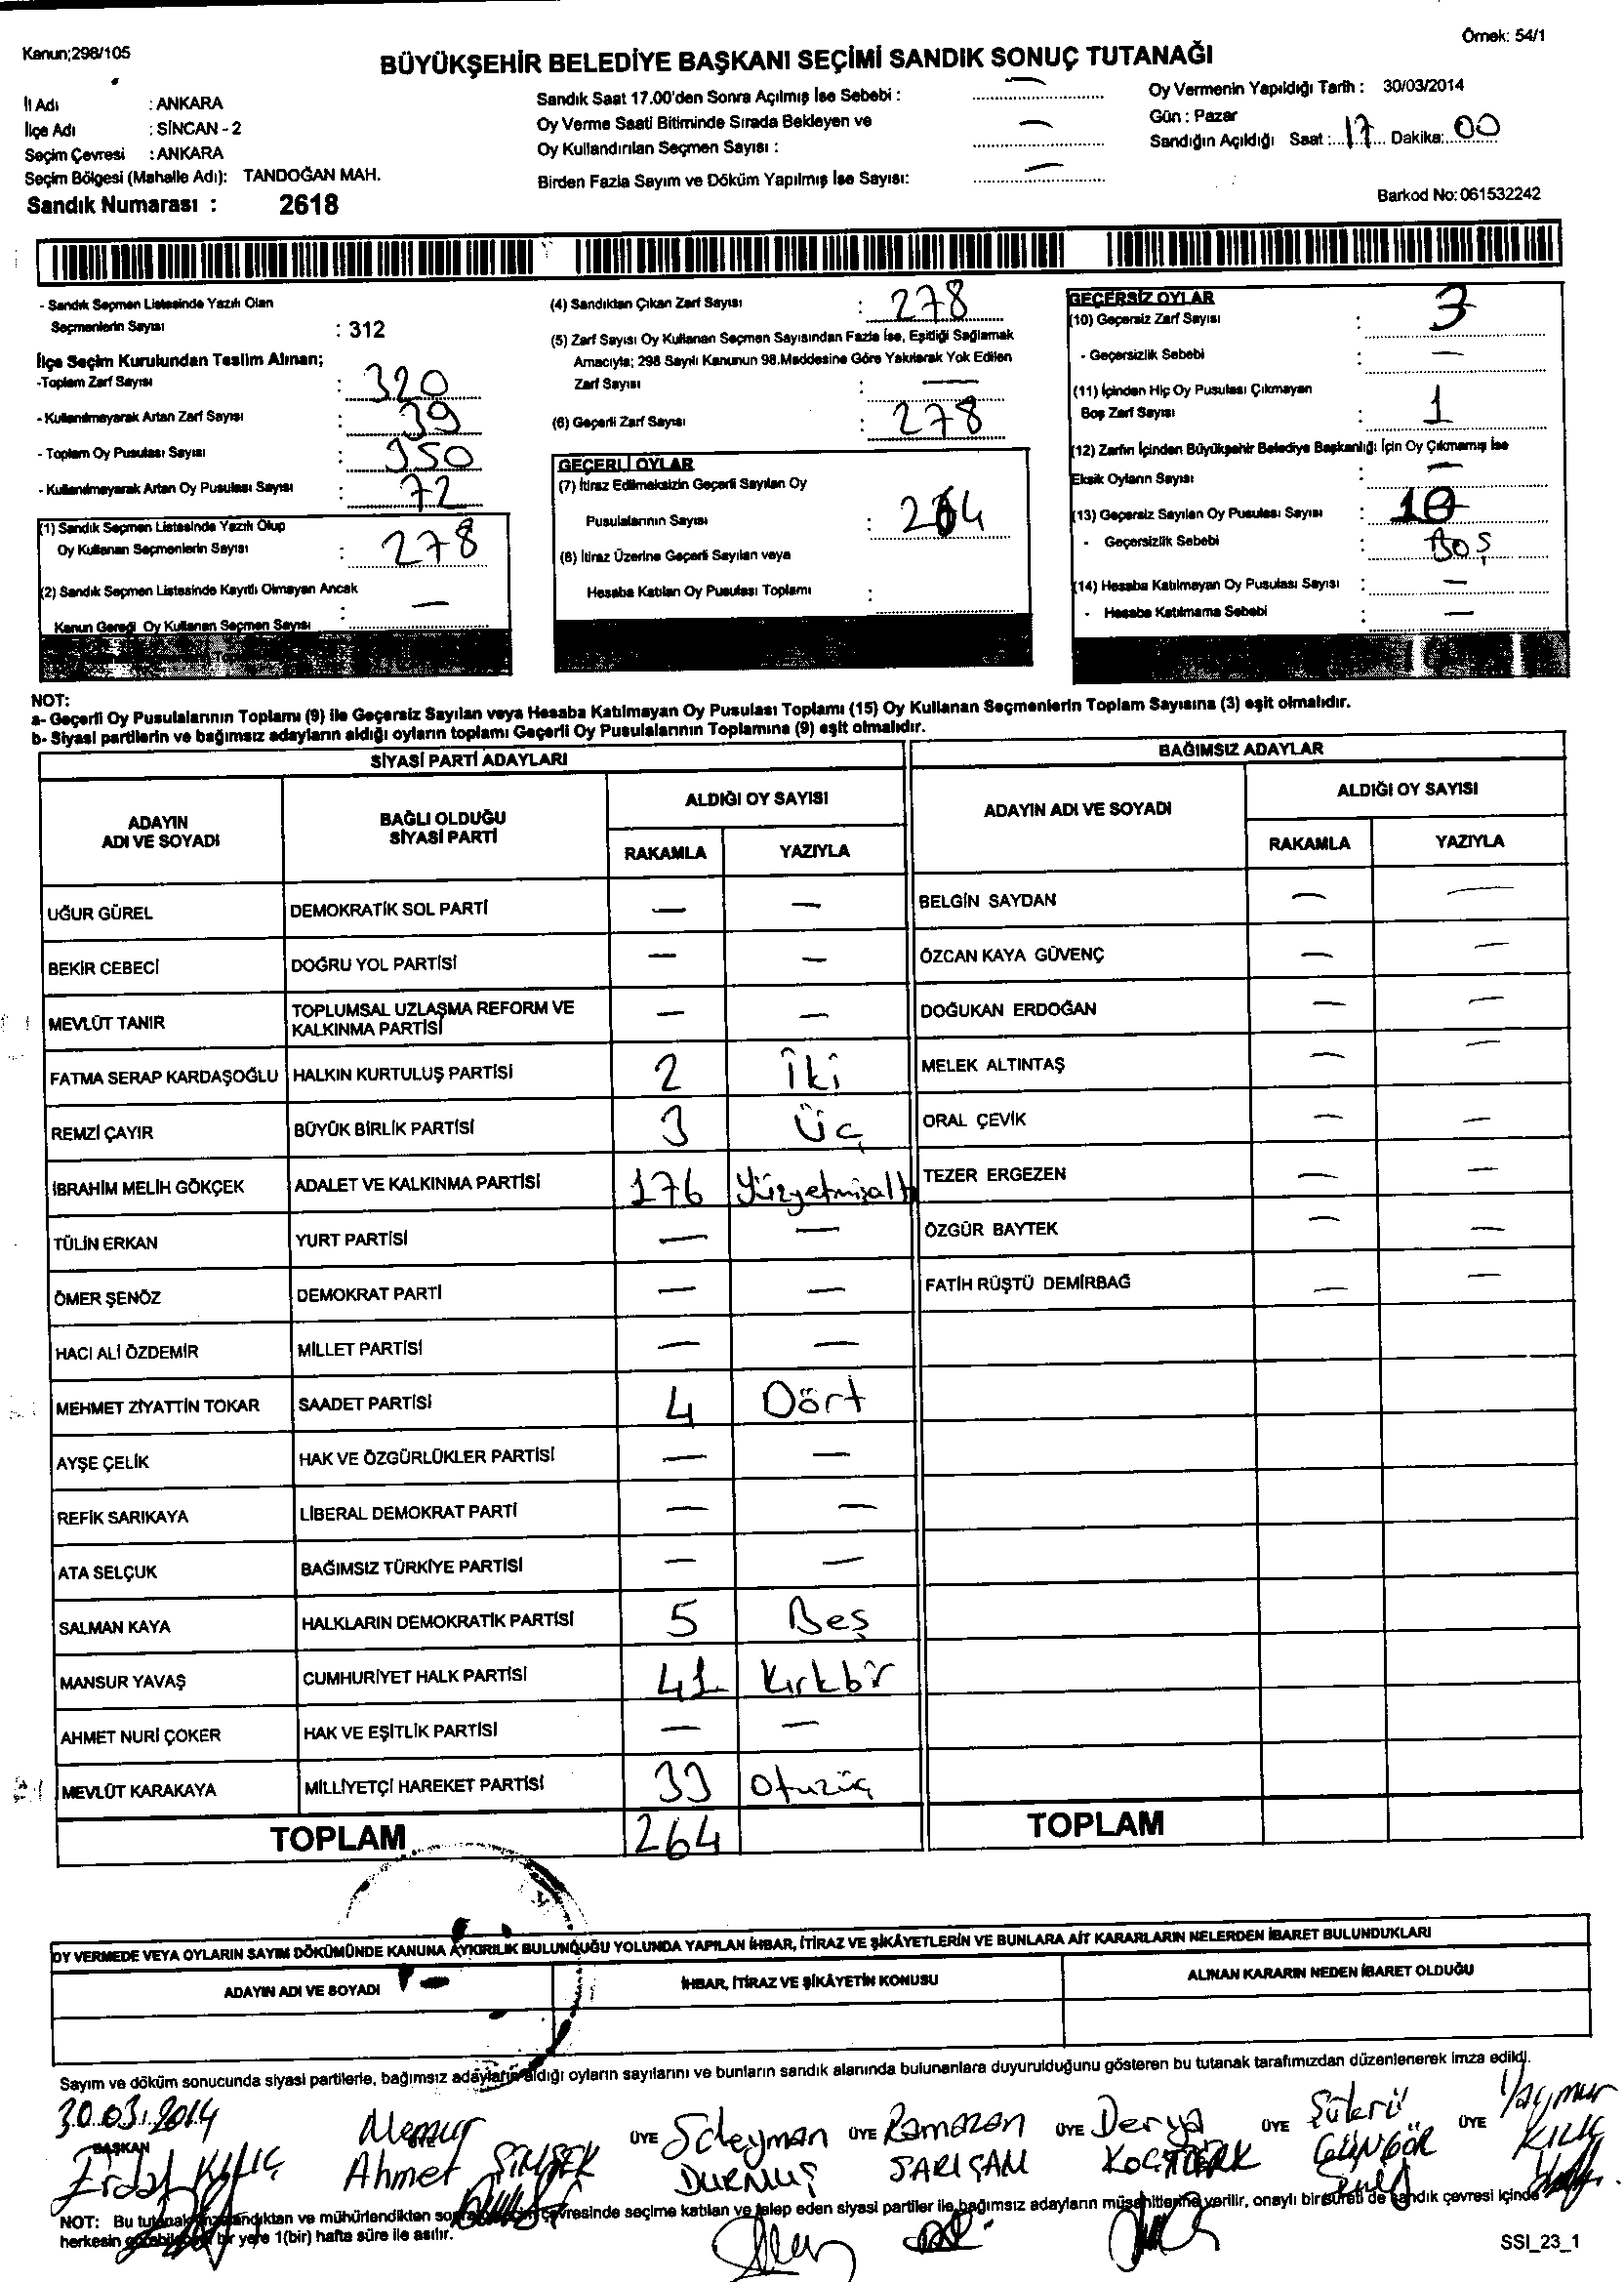 Kanun;298/105
Örnek: 54/1
BÜYÜKŞEHİR BELEDİYE BAŞKANI SEÇİMİ SANDIK SONUÇ TUTANAĞI
İl Adı : ANKARA
İlçe Adı : SİNCAN - 2
Seçim Çevresi : ANKARA
Seçim Bölgesi (Mahalle Adı): TANDOĞAN MAH.
Sandık Numarası : 2618
Sandık Saat 17.00'den Sonra Açılmış İse Sebebi : —
Oy Verme Saati Bitiminde Sırada Bekleyen ve
Oy Kullandırılan Seçmen Sayısı : —
Birden Fazla Sayım ve Döküm Yapılmış İse Sayısı: —
Oy Vermenin Yapıldığı Tarih : 30/03/2014
Gün : Pazar
Sandığın Açıldığı Saat : 17 Dakika: 00
Barkod No: 061532242
- Sandık Seçmen Listesinde Yazılı Olan
Seçmenlerin Sayısı : 312
İlçe Seçim Kurulundan Teslim Alınan;
-Toplam Zarf Sayısı : 320
- Kullanılmayarak Artan Zarf Sayısı : 39
- Toplam Oy Pusulası Sayısı : 350
- Kullanılmayarak Artan Oy Pusulası Sayısı : 72
(1) Sandık Seçmen Listesinde Yazılı Olup
Oy Kullanan Seçmenlerin Sayısı : 278
(2) Sandık Seçmen Listesinde Kayıtlı Olmayan Ancak
Kanun Gereği Oy Kullanan Seçmen Sayısı : —
(4) Sandıktan Çıkan Zarf Sayısı : 278
(5) Zarf Sayısı Oy Kullanan Seçmen Sayısından Fazla İse, Eşitliği Sağlamak
Amacıyla; 298 Sayılı Kanunun 98.Maddesine Göre Yakılarak Yok Edilen
Zarf Sayısı : —
(6) Geçerli Zarf Sayısı : 278
GEÇERLİ OYLAR
(7) İtiraz Edilmeksizin Geçerli Sayılan Oy
Pusulalarının Sayısı : 264
(8) İtiraz Üzerine Geçerli Sayılan veya
Hesaba Katılan Oy Pusulası Toplamı :
GEÇERSİZ OYLAR
(10) Geçersiz Zarf Sayısı : 3
- Geçersizlik Sebebi : —
(11) İçinden Hiç Oy Pusulası Çıkmayan
Boş Zarf Sayısı : 1
(12) Zarfın İçinden Büyükşehir Belediye Başkanlığı İçin Oy Çıkmamış İse
Eksik Oyların Sayısı : —
(13) Geçersiz Sayılan Oy Pusulası Sayısı : 10
- Geçersizlik Sebebi : Boş
(14) Hesaba Katılmayan Oy Pusulası Sayısı : —
- Hesaba Katılmama Sebebi : —
NOT:
a- Geçerli Oy Pusulalarının Toplamı (9) ile Geçersiz Sayılan veya Hesaba Katılmayan Oy Pusulası Toplamı (15) Oy Kullanan Seçmenlerin Toplam Sayısına (3) eşit olmalıdır.
b- Siyasi partilerin ve bağımsız adayların aldığı oyların toplamı Geçerli Oy Pusulalarının Toplamına (9) eşit olmalıdır.
SİYASİ PARTİ ADAYLARI
ADAYIN ADI VE SOYADI BAĞLI OLDUĞU SİYASİ PARTİ ALDIĞI OY SAYISI
RAKAMLA YAZIYLA
UĞUR GÜREL DEMOKRATİK SOL PARTİ — —
BEKİR CEBECİ DOĞRU YOL PARTİSİ — —
MEVLÜT TANIR TOPLUMSAL UZLAŞMA REFORM VE KALKINMA PARTİSİ — —
FATMA SERAP KARDAŞOĞLU HALKIN KURTULUŞ PARTİSİ 2 İki
REMZİ ÇAYIR BÜYÜK BİRLİK PARTİSİ 3 Üç
İBRAHİM MELİH GÖKÇEK ADALET VE KALKINMA PARTİSİ 176 Yüzyetmişaltı
TÜLİN ERKAN YURT PARTİSİ — —
ÖMER ŞENÖZ DEMOKRAT PARTİ — —
HACI ALİ ÖZDEMİR MİLLET PARTİSİ — —
MEHMET ZİYATTİN TOKAR SAADET PARTİSİ 4 Dört
AYŞE ÇELİK HAK VE ÖZGÜRLÜKLER PARTİSİ — —
REFİK SARIKAYA LİBERAL DEMOKRAT PARTİ — —
ATA SELÇUK BAĞIMSIZ TÜRKİYE PARTİSİ — —
SALMAN KAYA HALKLARIN DEMOKRATİK PARTİSİ 5 Beş
MANSUR YAVAŞ CUMHURİYET HALK PARTİSİ 41 Kırkbir
AHMET NURİ ÇOKER HAK VE EŞİTLİK PARTİSİ — —
MEVLÜT KARAKAYA MİLLİYETÇİ HAREKET PARTİSİ 33 Otuzüç
TOPLAM 264
BAĞIMSIZ ADAYLAR
ADAYIN ADI VE SOYADI ALDIĞI OY SAYISI
RAKAMLA YAZIYLA
BELGİN SAYDAN — —
ÖZCAN KAYA GÜVENÇ — —
DOĞUKAN ERDOĞAN — —
MELEK ALTINTAŞ — —
ORAL ÇEVİK — —
TEZER ERGEZEN — —
ÖZGÜR BAYTEK — —
FATİH RÜŞTÜ DEMİRBAĞ — —
TOPLAM
OY VERMEDE VEYA OYLARIN SAYIM DÖKÜMÜNDE KANUNA AYKIRILIK BULUNDUĞU YOLUNDA YAPILAN İHBAR, İTİRAZ VE ŞİKÂYETLERİN VE BUNLARA AİT KARARLARIN NELERDEN İBARET BULUNDUKLARI
ADAYIN ADI VE SOYADI İHBAR, İTİRAZ VE ŞİKÂYETİN KONUSU ALINAN KARARIN NEDEN İBARET OLDUĞU
Sayım ve döküm sonucunda siyasi partilerle, bağımsız adayların aldığı oyların sayılarını ve bunların sandık alanında bulunanlara duyurulduğunu gösteren bu tutanak tarafımızdan düzenlenerek imza edildi.
30.03.2014
BAŞKAN Erdal KILIÇ
Memur ÜYE Ahmet ŞİMŞEK
ÜYE Süleyman DURMUŞ
ÜYE Ramazan SARIÇAM
ÜYE Derya KOÇTÜRK
ÜYE Şükrü GÜNGÖR
ÜYE Yağmur KILIÇ
NOT: Bu tutanak imzalandıktan ve mühürlendikten sonra seçim çevresinde seçime katılan ve talep eden siyasi partiler ile bağımsız adayların müşahitlerine verilir, onaylı bir sureti de sandık çevresi içinde
herkesin görebileceği bir yere 1(bir) hafta süre ile asılır.
SSI_23_1